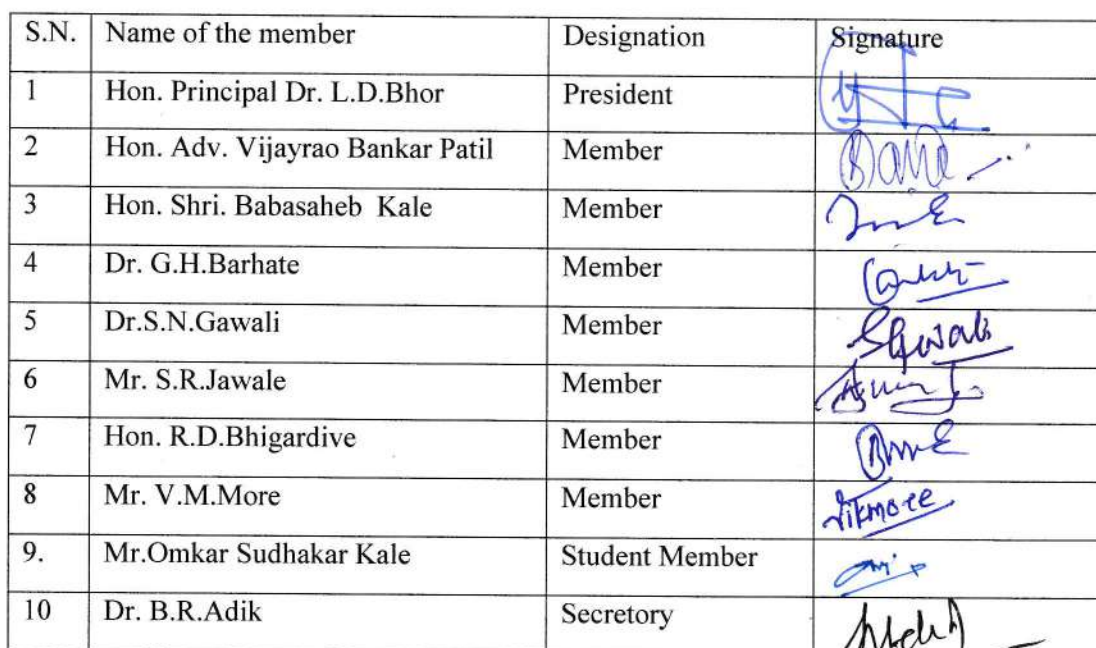 S.N. Name of the member Designation Signature
1 Hon. Principal Dr. L.D.Bhor President
2 Hon. Adv. Vijayrao Bankar Patil Member
3 Hon. Shri. Babasaheb Kale Member
4 Dr. G.H.Barhate Member
5 Dr.S.N.Gawali Member
6 Mr. S.R.Jawale Member
7 Hon. R.D.Bhigardive Member
8 Mr. V.M.More Member
9. Mr.Omkar Sudhakar Kale Student Member
10 Dr. B.R.Adik Secretory